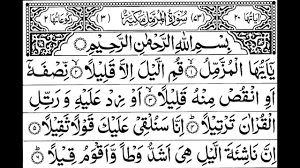 اٰیاتہا ٢٠ (٧٣) سُوْرَةُ الْمُزَّمِّلِ مَكِّيَّةٌ (٣) رکوعاتہا ٢
بِسْمِ اللهِ الرَّحْمٰنِ الرَّحِيْمِ
يٰٓاَيُّهَا الْمُزَّمِّلُ ١ قُمِ الَّيْلَ اِلَّا قَلِيْلًا ٢ نِّصْفَهٗٓ
اَوِ انْقُصْ مِنْهُ قَلِيْلًا ٣ اَوْ زِدْ عَلَيْهِ وَ رَتِّلِ
الْقُرْاٰنَ تَرْتِيْلًا ٤ اِنَّا سَنُلْقِيْ عَلَيْكَ قَوْلًا ثَقِيْلًا ٥
اِنَّ نَاشِئَةَ الَّيْلِ هِيَ اَشَدُّ وَطْاً وَّ اَقْوَمُ قِيْلًا ٦